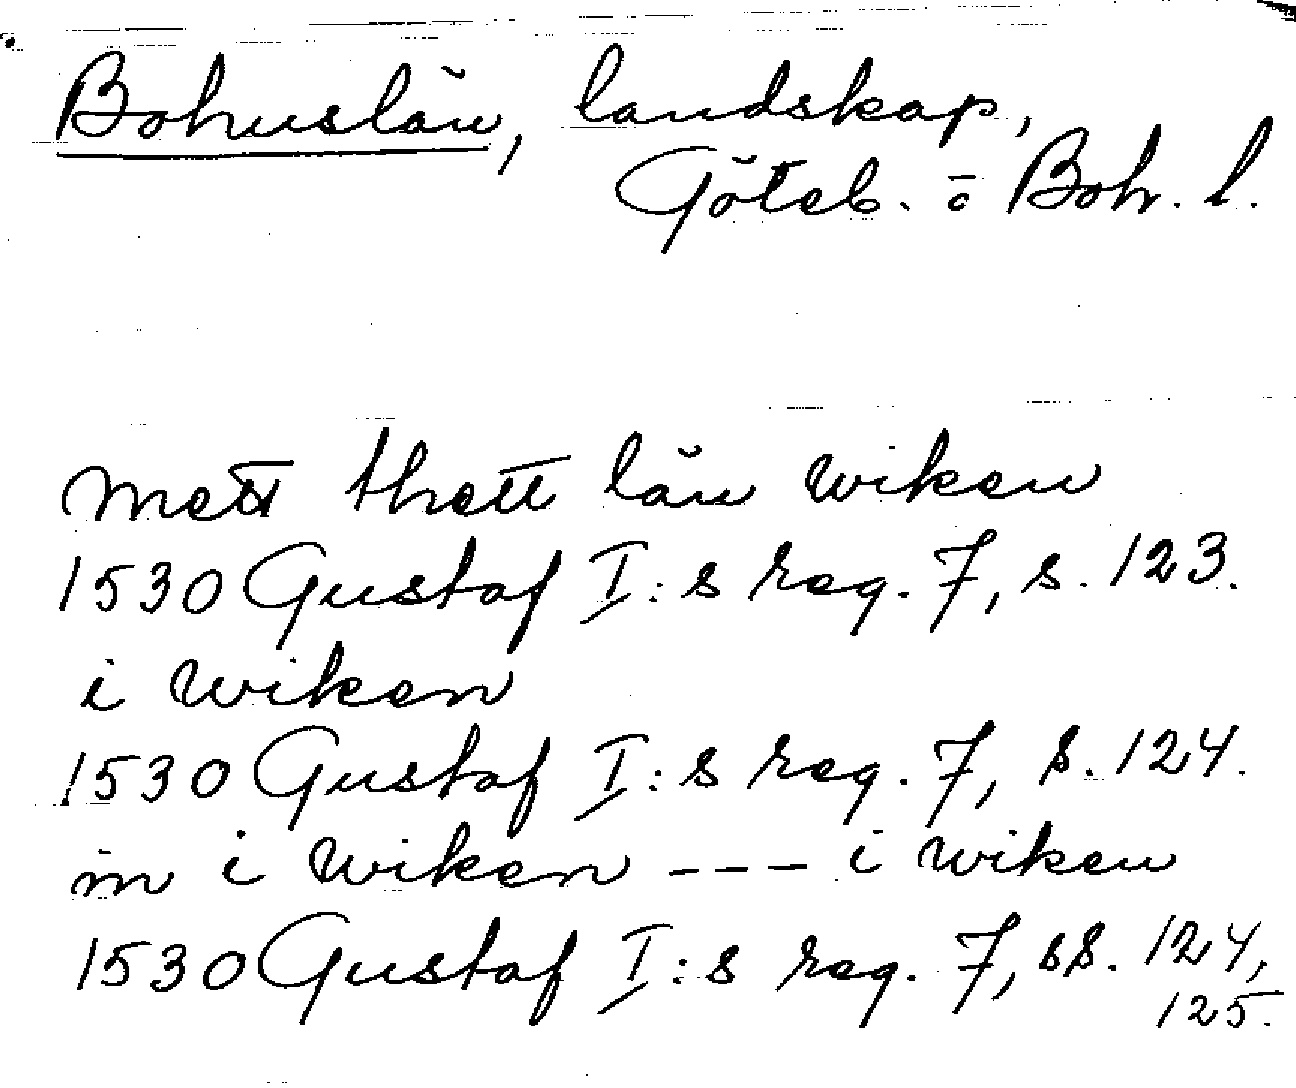 Bohuslän, landskap,
Göteb. o Boh. l.
mett thett län wiken
1530 Gustaf I:s reg. 7, s. 123.
i wiken
1530 Gustaf I:s reg. 7, s. 124.
in i wiken --- i wiken
1530 Gustaf I:s reg. 7, ss. 124,
125.